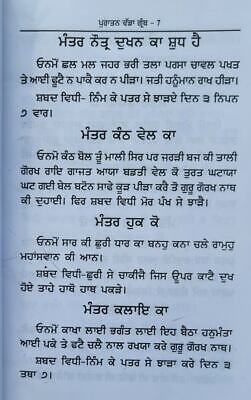 ਪੁਰਾਤਨ ਵੱਡਾ ਗ੍ਰੰਥ - 7
ਮੰਤਰ ਨੌਤ੍ਰ ਦੁਖਨ ਕਾ ਸ਼ੁਧ ਹੈ
ਓਨਮੋਂ ਛਲ ਮਲ ਜਹਰ ਭਰੀ ਤਲਾ ਪਰਸਾ ਚਾਵਲ ਪਖਤ
ਤੇ ਆਈ ਫੂਟੈ ਨ ਪਾਕੈ ਕਰ ਨ ਪੀੜਾ। ਜਤੀ ਹਨੂੰਮਾਨ ਰਾਖ ਹੀੜਾ।
ਸ਼ਬਦ ਵਿਧੀ- ਨਿੰਮ ਕੇ ਪਤਰ ਸੇ ਝਾੜਏ ਦਿਨ ੩ ਨਿਪਨ
੭ ਵਾਰ।
ਮੰਤਰ ਕੰਠ ਵੇਲ ਕਾ
ਓਨਮੋਂ ਕੰਠ ਬੋਲ ਤੂੰ ਮਾਲੀ ਸਿਰ ਪਰ ਜਰੜੀ ਬਜ ਕੀ ਤਾਲੀ
ਗੋਰਖ ਰਾਇ ਗਾਜਤ ਆਯਾ ਬਡਤੀ ਵੇਲ ਕੋ ਤੁਰਤ ਘਟਾਯਾ
ਘਟ ਗਈ ਬੇਲ ਬਣੈਨ ਸਾਵੇ ਕੂੜ ਪੀੜਾ ਕਰੈ ਤੋ ਗੁਰੂ ਗੋਰਖ ਨਾਥ
ਕੀ ਦੁਹਾਈ। ਫਿਰ ਸ਼ਬਦ ਵਿਧੀ ਮੋਰ ਪੰਖ ਸੇ ਝਾੜੈ।
ਮੰਤਰ ਹੁਕ ਕੋ
ਓਨਮੋਂ ਸਾਰ ਕੀ ਛੁਰੀ ਧਾਰ ਕਾ ਬਨਹੁ ਕਨਾ ਚਲੇ ਰਾਮੁਹ
ਮਹਾਂਸਵਾਨ ਕੀ ਆਨ।
ਸ਼ਬਦ ਵਿਧੀ-ਛੁਰੀ ਸੇ ਚਾਕੀਜੈ ਜਿਸ ਉਪਰ ਕਾਟੈ ਦੁਖ
ਹੋਏ ਤਾਹੇ ਹਾਥੋ ਹਾਥ ਪਕੜੇ।
ਮੰਤਰ ਕਲਾਇ ਕਾ
ਓਨਮੋਂ ਕਾਖਾ ਲਾਈ ਭਗੰਤ ਲਾਈ ਇਹ ਬੈਠਾ ਹਨੁਮੰਤਾ
ਆਈ ਪਕੇ ਤੇ ਫਟੈ ਚਲੈ ਨਾਲ ਰਖਯਾ ਕਰੇ ਗੁਰੂ ਗੋਰਖ ਨਾਥ।
ਸ਼ਬਦ ਵਿਧੀ- ਨਿੰਮ ਕੇ ਪਤਰ ਸੇ ਝਾੜਾ ਕਰੇ ਦਿਨ ੩
ਤਥਾ ੭।